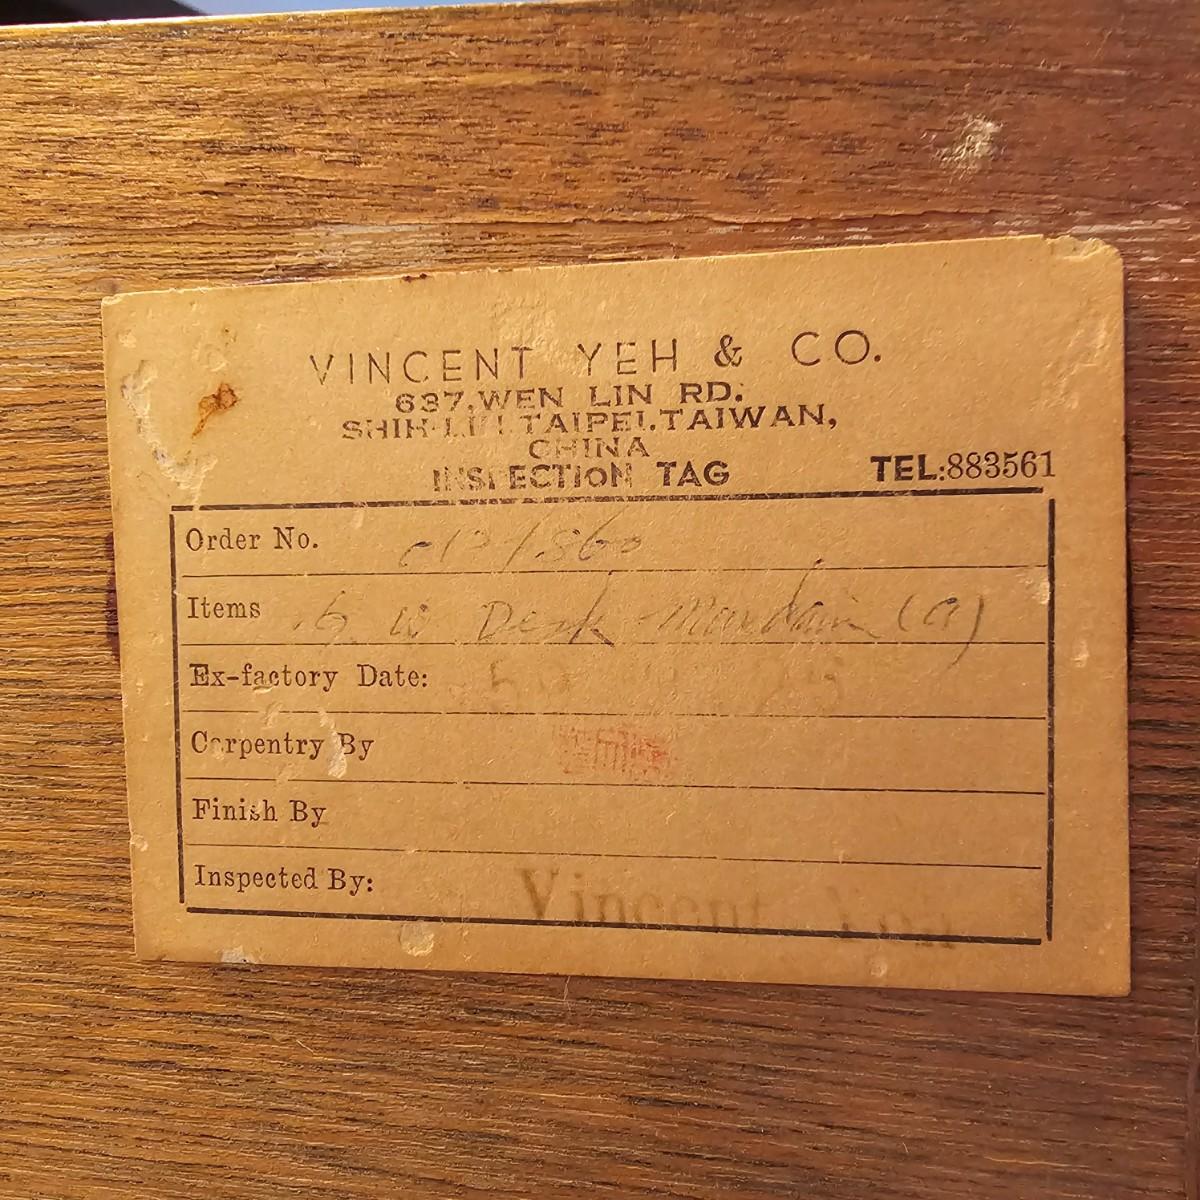 VINCENT YEH & CO.
637, WEN LIN RD.
SHIH-LIN, TAIPEI, TAIWAN,
CHINA
INSPECTION TAG TEL:883561
Order No.
Items 6 W Desk
Ex-factory Date:
Carpentry By
Finish By
Inspected By: Vincent Yeh